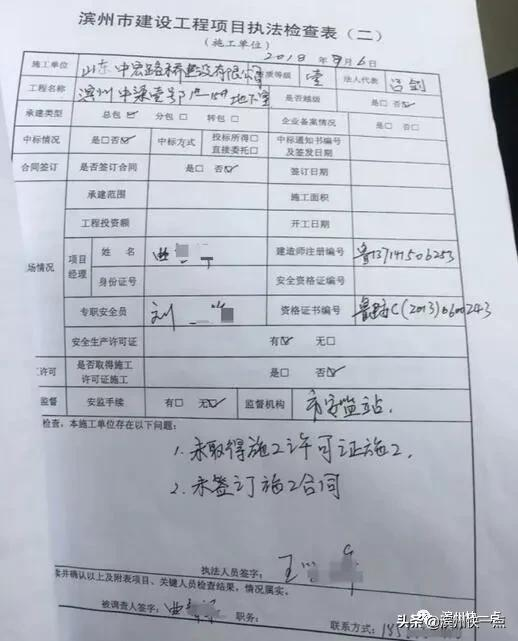 滨州市建设工程项目执法检查表（二）
（施工单位）
2018年9月6日
施工单位 山东中宏路桥建设有限公司 资质等级 壹 法人代表 吕剑
工程名称 滨州中梁壹号院 1#-15#地下室 是否越级 是□否☑
承建类型 总包☑ 分包□ 转包□ 企业备案情况 是□ 否□
中标情况 是□否☑ 中标方式 投标所得□ 直接委托□ 中标通知书编号及签发日期
合同签订 是否签订合同 是□ 否☑ 签订日期
承建范围 施工面积
工程投资额 开工日期
场情况 项目经理 姓名 曲 建造师注册编号 鲁137141506253
身份证号 安全资格证编号
专职安全员 刘 资格证书编号 C(2013)0600243
安全生产许可证 有☑ 无□
许可 是否取得施工许可证施工 是□ 否☑
监督 安监手续 有□ 无☑ 监督机构 市安监站.
检查，本施工单位存在以下问题：
1. 未取得施工许可证施工.
2. 未签订施工合同
执法人员签字： 王
读并确认以上及附表项目、关键人员检查结果，情况属实。
被调查人签字： 曲 职务： 联系方式：18
滨州快一点
头条@滨州快一点